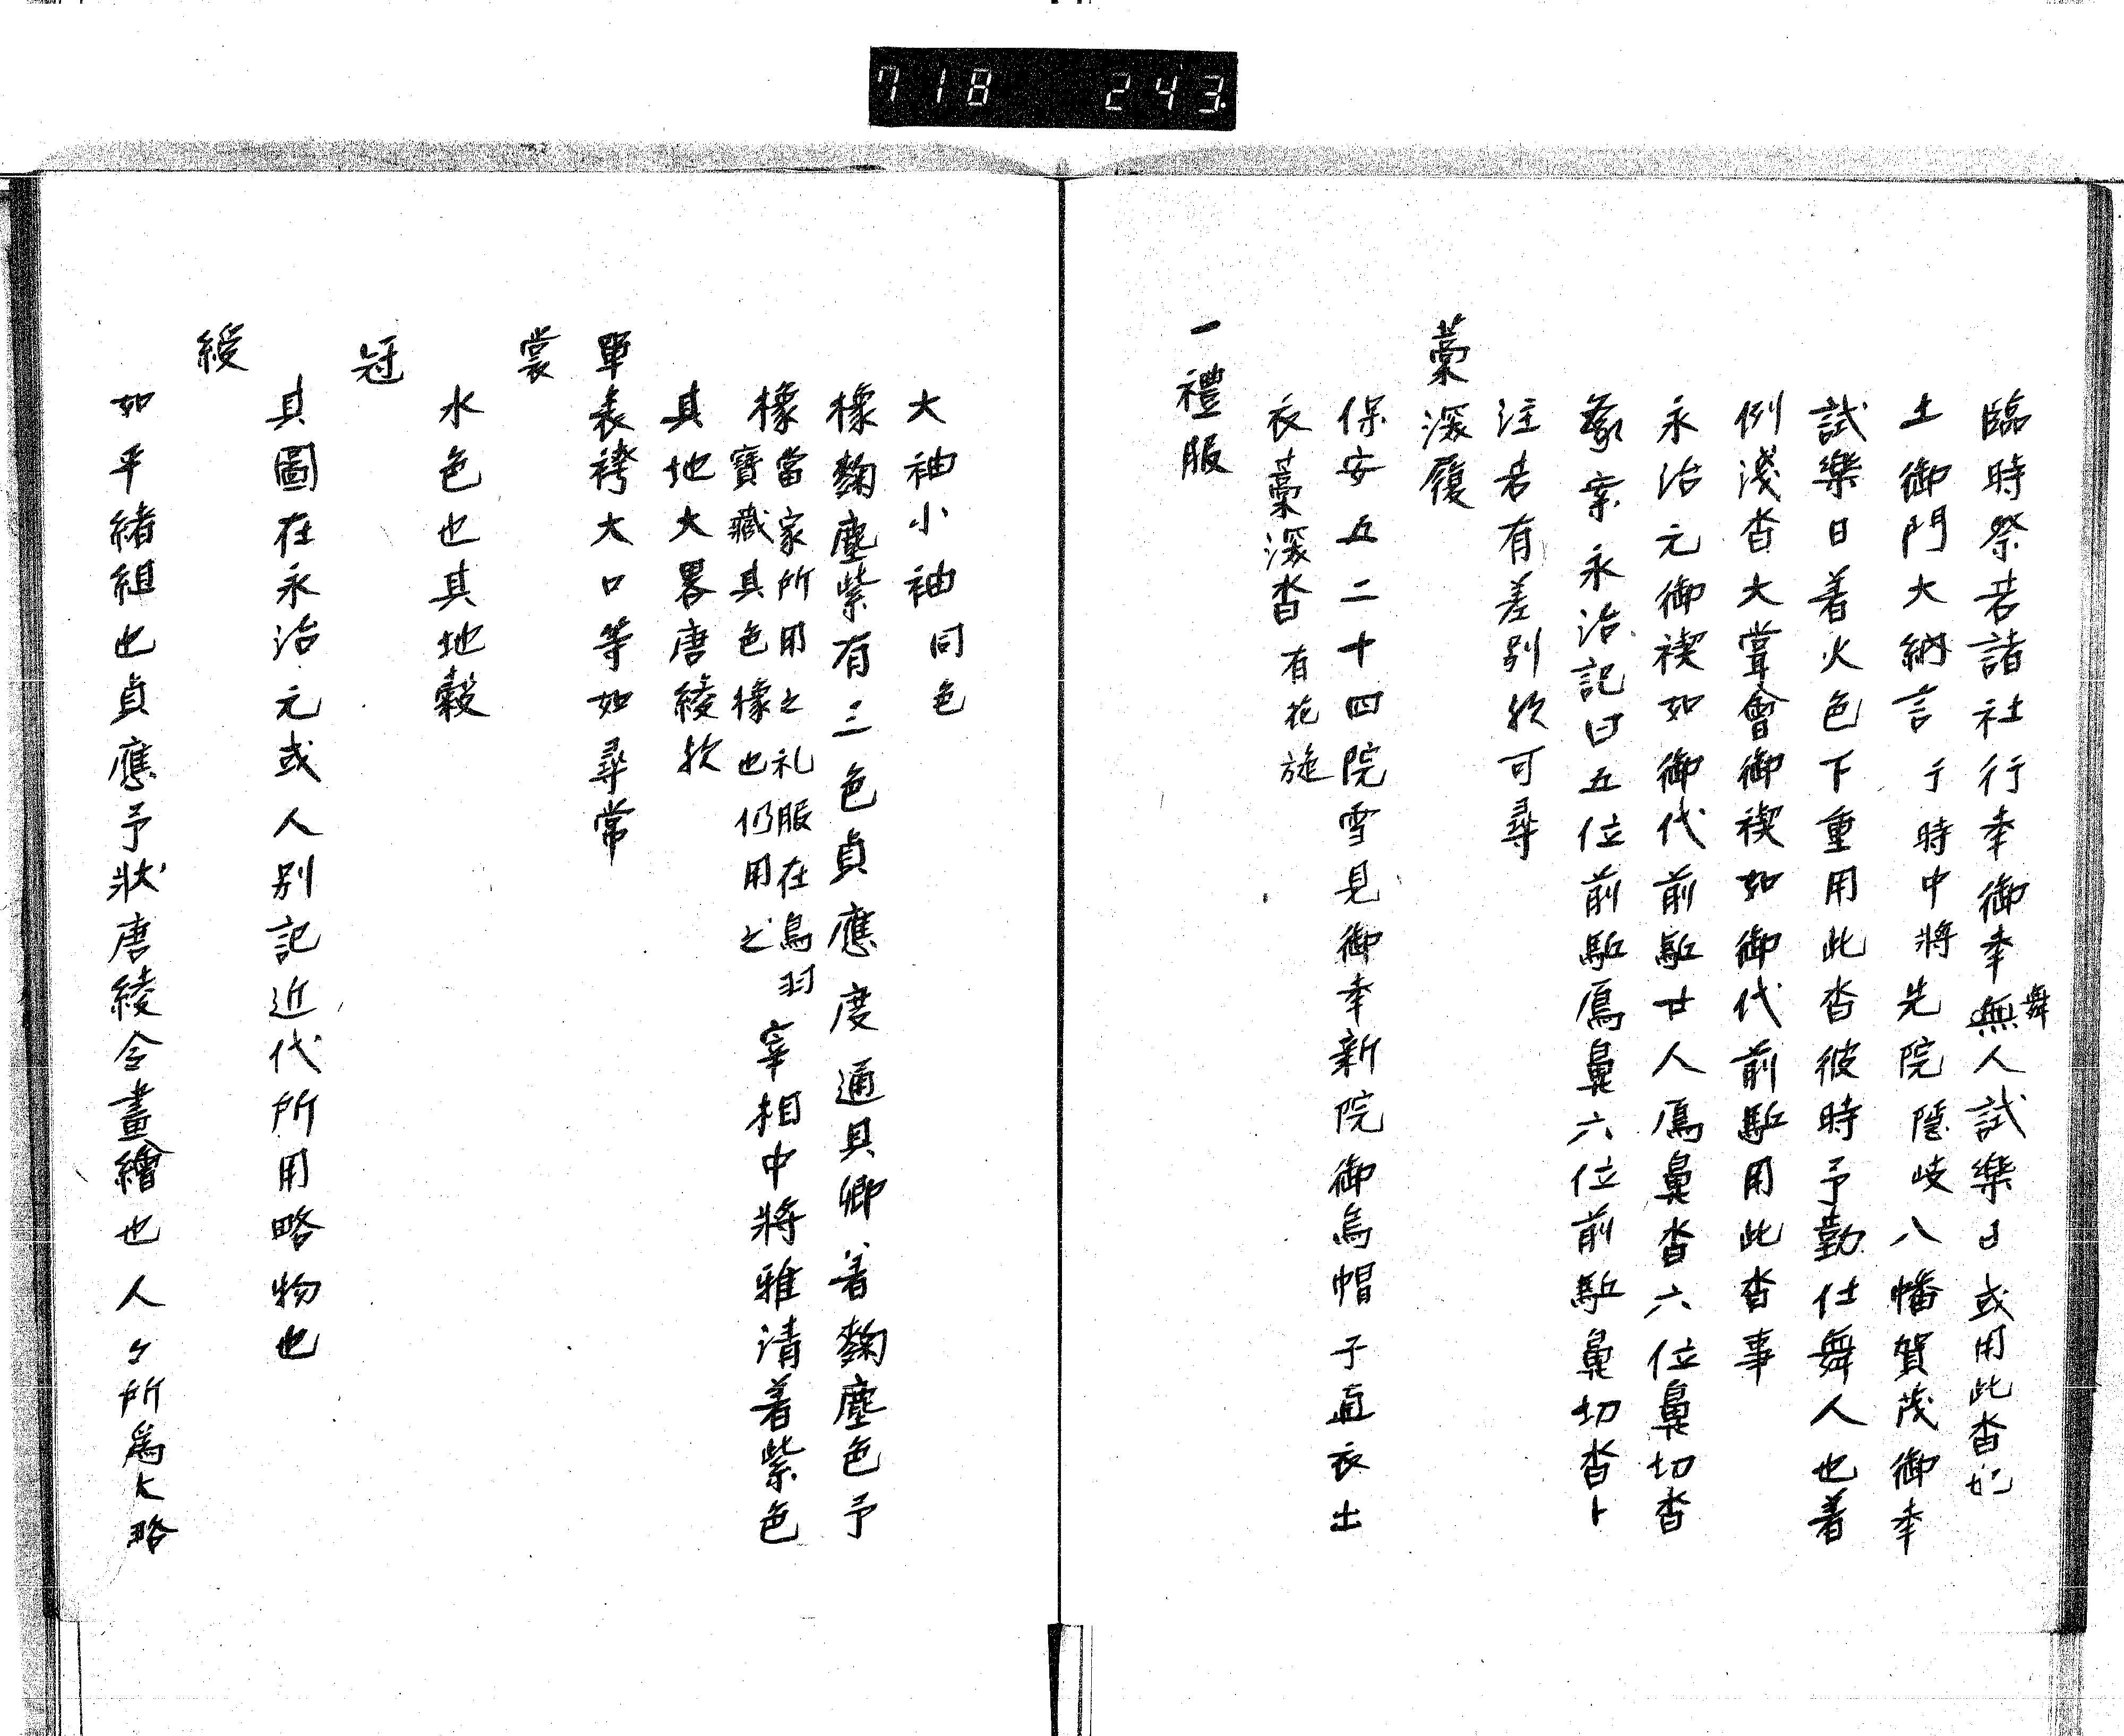 718 243
臨時祭若諸社行幸御幸無人試樂日或用此沓
舞
土御門大納言于時中將先院隱岐八幡賀茂御幸
試樂日着火色下重用此沓彼時予勤仕舞人也着
例淺沓大嘗會御禊如御代前駈用此沓事
永治元御禊如御代前駈廿人鳫鼻沓六位鼻切沓
家永治記曰五位前駈鳫鼻六位前駈鼻切沓ト
注若有差別欤可尋
藁深履
保安五二十四院雪見御幸新院御烏帽子直衣出
衣藁深沓有花施
一禮服
大袖小袖同色
橡麴塵紫有三色貞應度通具卿着麴塵色予
橡當家所用之礼服在鳥羽
寶藏其色橡也仍用之
宰相中將雅清着紫色
其地大畧唐綾欤
單表袴大口等如尋常
裳
水色也其地縠
冠
其圖在永治元或人別記近代所用略物也
綬
如平緒組也貞應予狀唐綾令畫繪也人々所爲大略